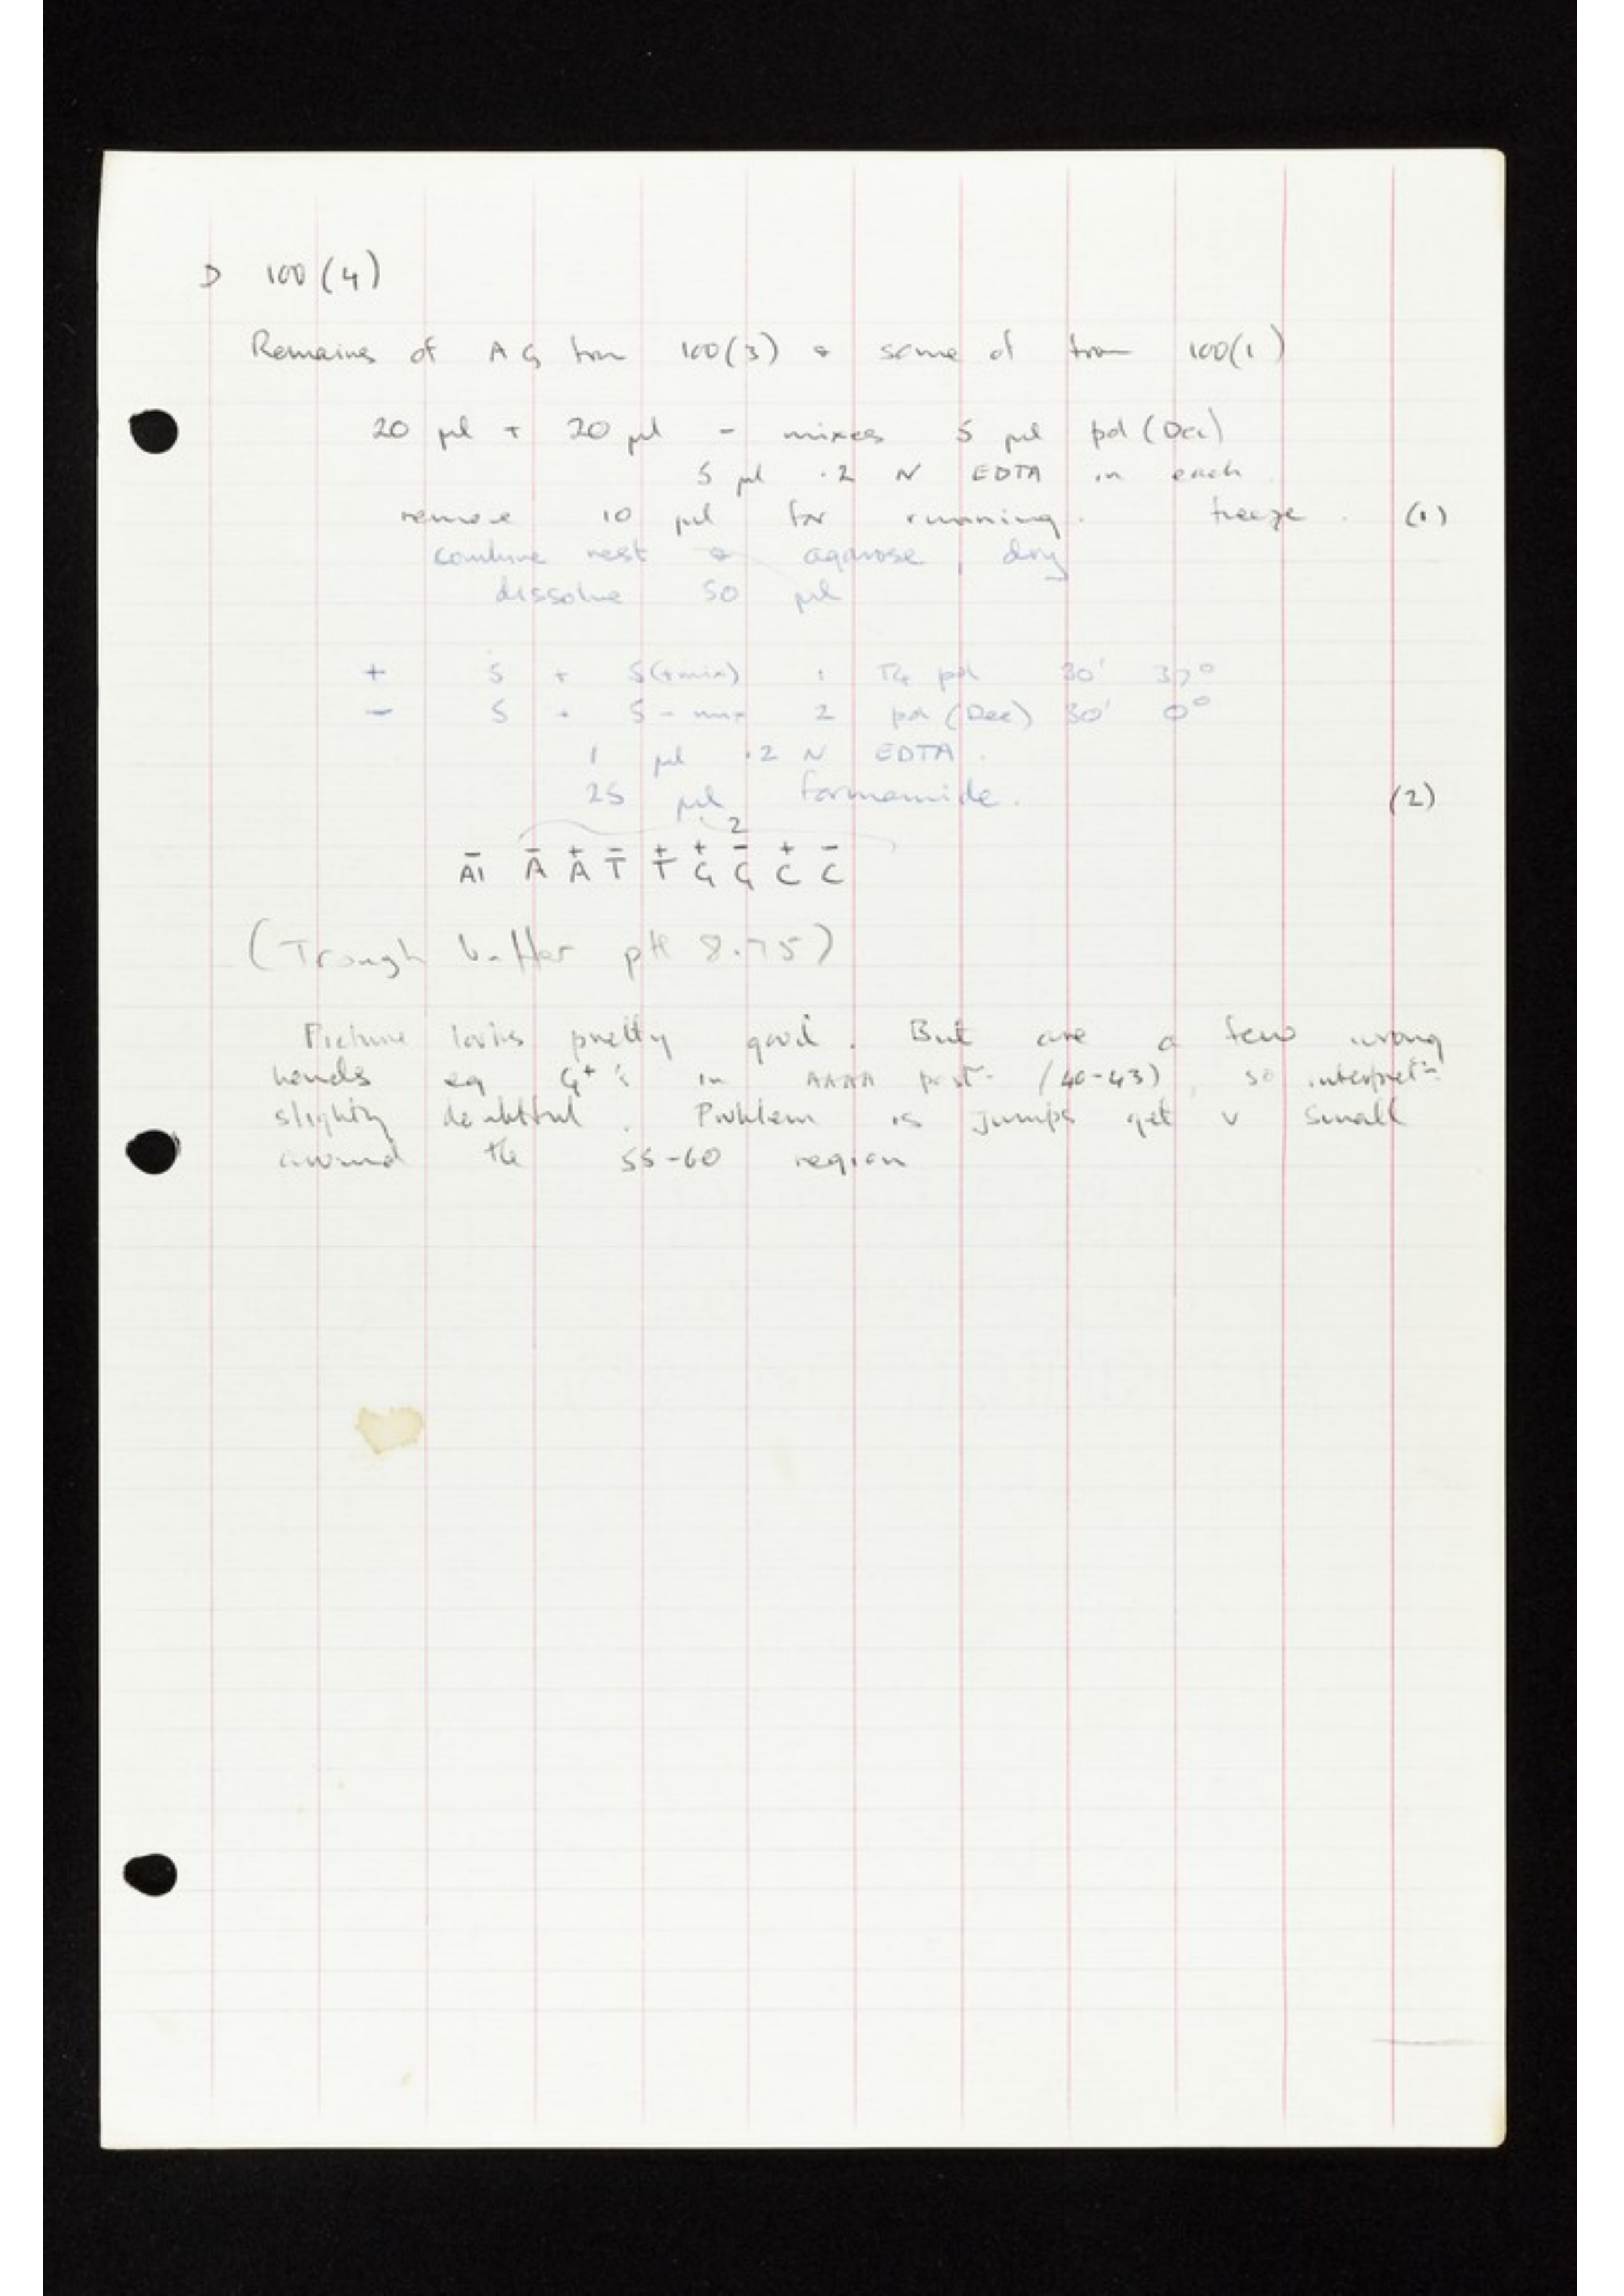 D 100 (4)
Remains of A G from 100(3) + some of from 100(1)
20 µl + 20 µl - mixes 5 µl pol (Dec)
5 µl .2 N EDTA in each
remove 10 µl for running. freeze. (1)
combine rest + agarose, dry
dissolve 50 µl
+ 5 + 5(+mix) 1 T4 pol 30' 37°
- 5 + 5 - mix 2 pol (Dec) 30' 0°
1 µl .2 N EDTA.
25 µl formamide. (2)
2
A1⁻ A⁻ A⁺ T⁻ T⁺ G⁺ G⁻ C⁺ C⁻
(Trough buffer pH 8.75)
Picture looks pretty good. But are a few wrong
bands eg G⁺'s in AAAA posⁿ (40-43), so interpretⁿ
slightly doubtful. Problem is jumps get v small
around the 55-60 region